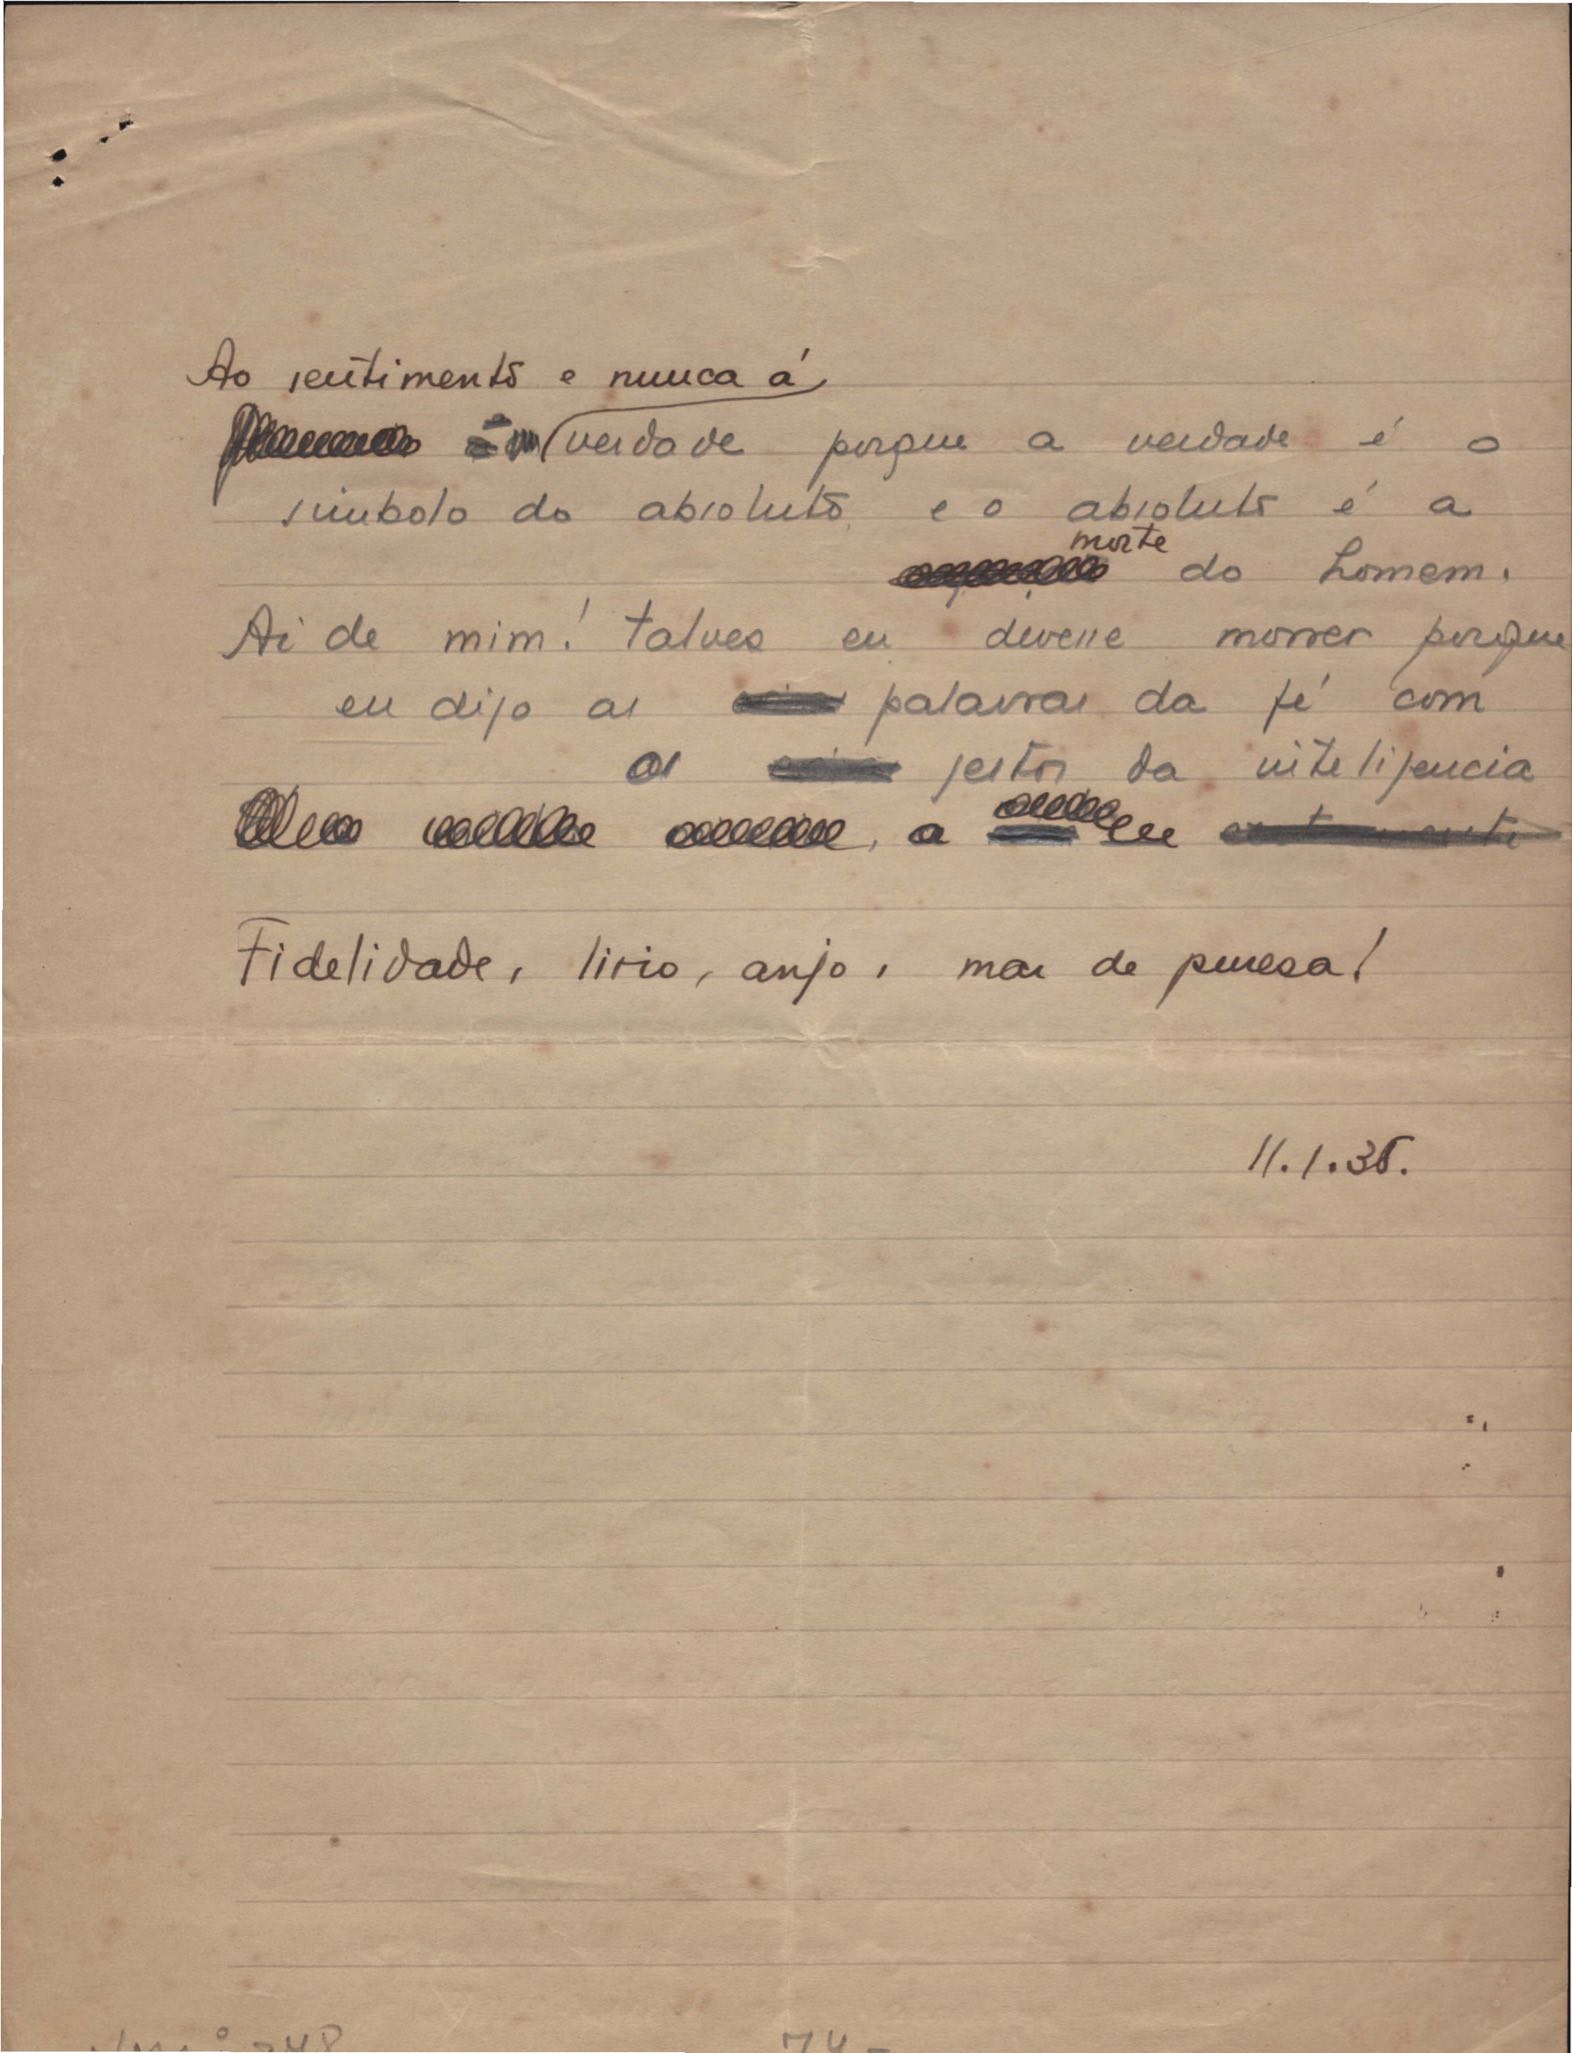 Ao sentimento e nunca á
verdade porque a verdade é o
simbolo do absoluto e o absoluto é a
morte
do homem.
Ai de mim! talvez eu devesse morrer porque
eu digo as palavras da fé com
os gestos da inteligencia
Fidelidade, lirio, anjo, mar de pureza!
11.1.35.